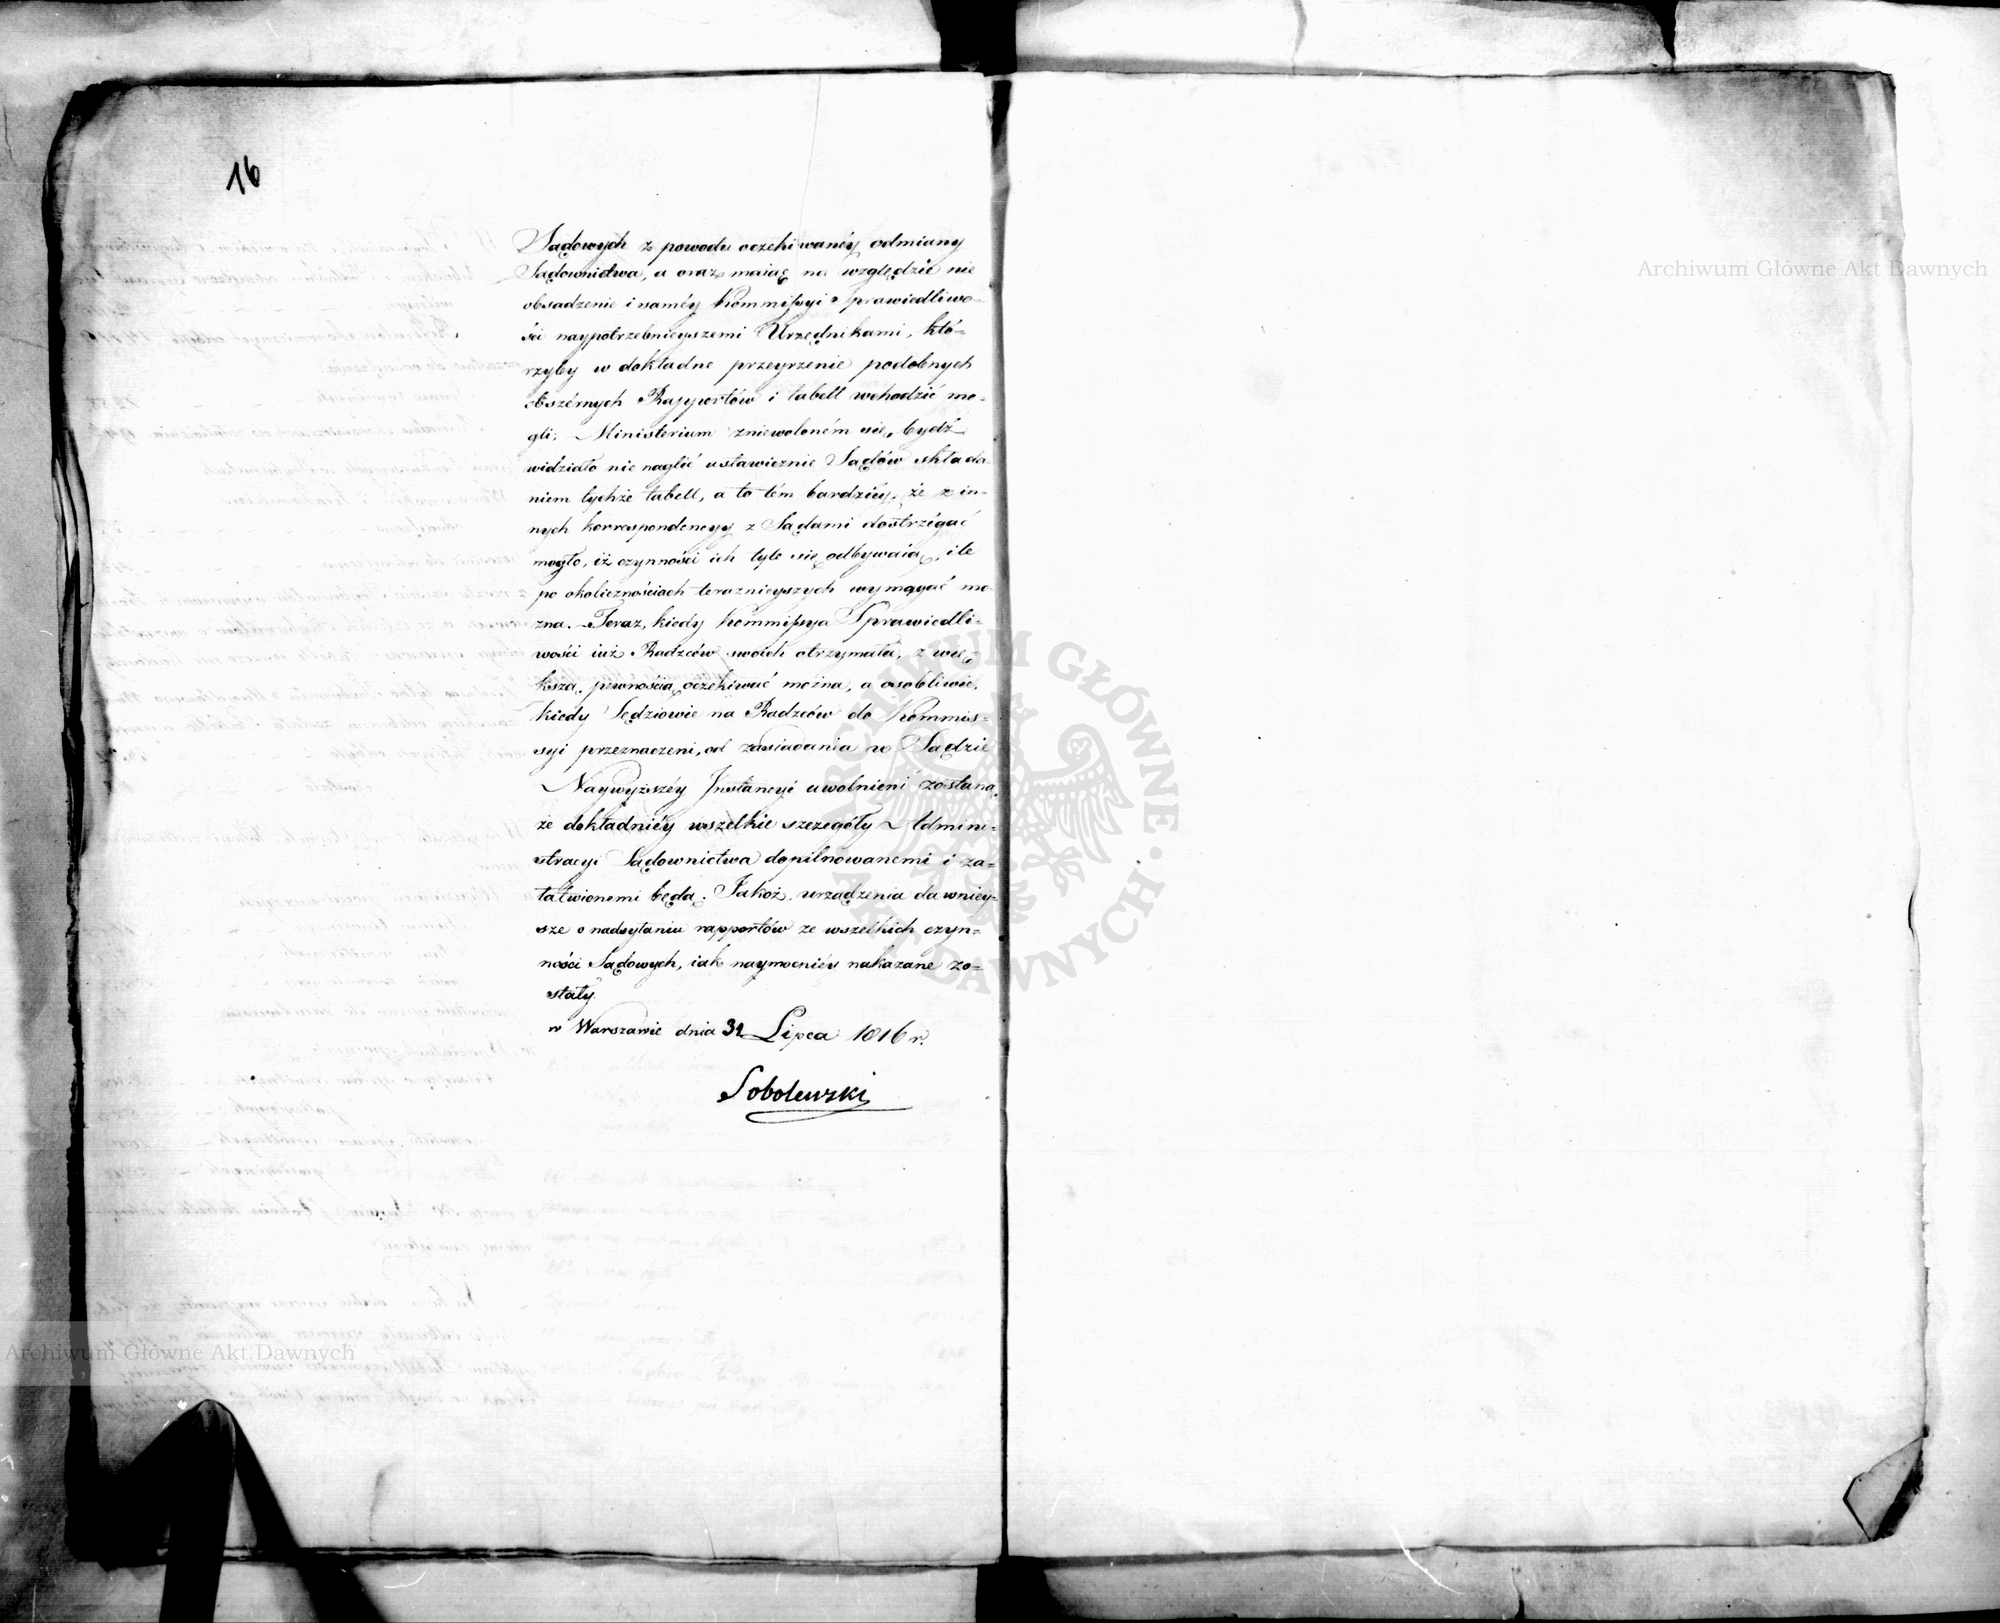 16
Sądowych z powodu oczekiwanéy odmiany
Sądownictwa, a oraz maiąc na względzie nie
obsadzenie i saméy Kommissyi Sprawiedliwo-
ści naypotrzebnieyszemi Urzędnikami, któ-
rzyby w dokładne przeyrzenie podobnych
obszérnych Rapportów i tabell wchodzić mo-
gli. Ministerium zniewoloném się bydź
widziało nie naglić ustawicznie Sądów składa-
niem tychże tabell, a to tém bardziéy, że z in-
nych korrespondencyy z Sądami dostrzégać
mogło, iż czynności ich tyle się odbywaią, ile
po okolicznościach teraznieyszych wymagać mo
zna. Teraz, kiedy Kommissya Sprawiedli-
wości iuż Radzców swoich otrzymała, z wię-
kszą pewnością oczekiwać można, a osobliwie,
kiedy Sędziowie na Radzców do Kommis-
syi przeznaczeni, od zasiadania w Sądzie
Naywyższéy Instancyi uwolnieni zostaną,
że dokładniéy wszelkie szczegóły Admini-
stracyi Sądownictwa dopilnowanemi i za-
łatwionemi będą. Jakoż urządzenia dawniey-
sze o nadsyłaniu rapportów ze wszelkich czyn-
ności Sądowych, iak naymocniéy nakazane zo-
stały.
w Warszawie dnia 31 Lipca 1816 r.
Sobolewski
Archiwum Główne Akt Dawnych
Archiwum Główne Akt Dawnych
ARCHIWUM GŁÓWNE · AKT DAWNYCH ·